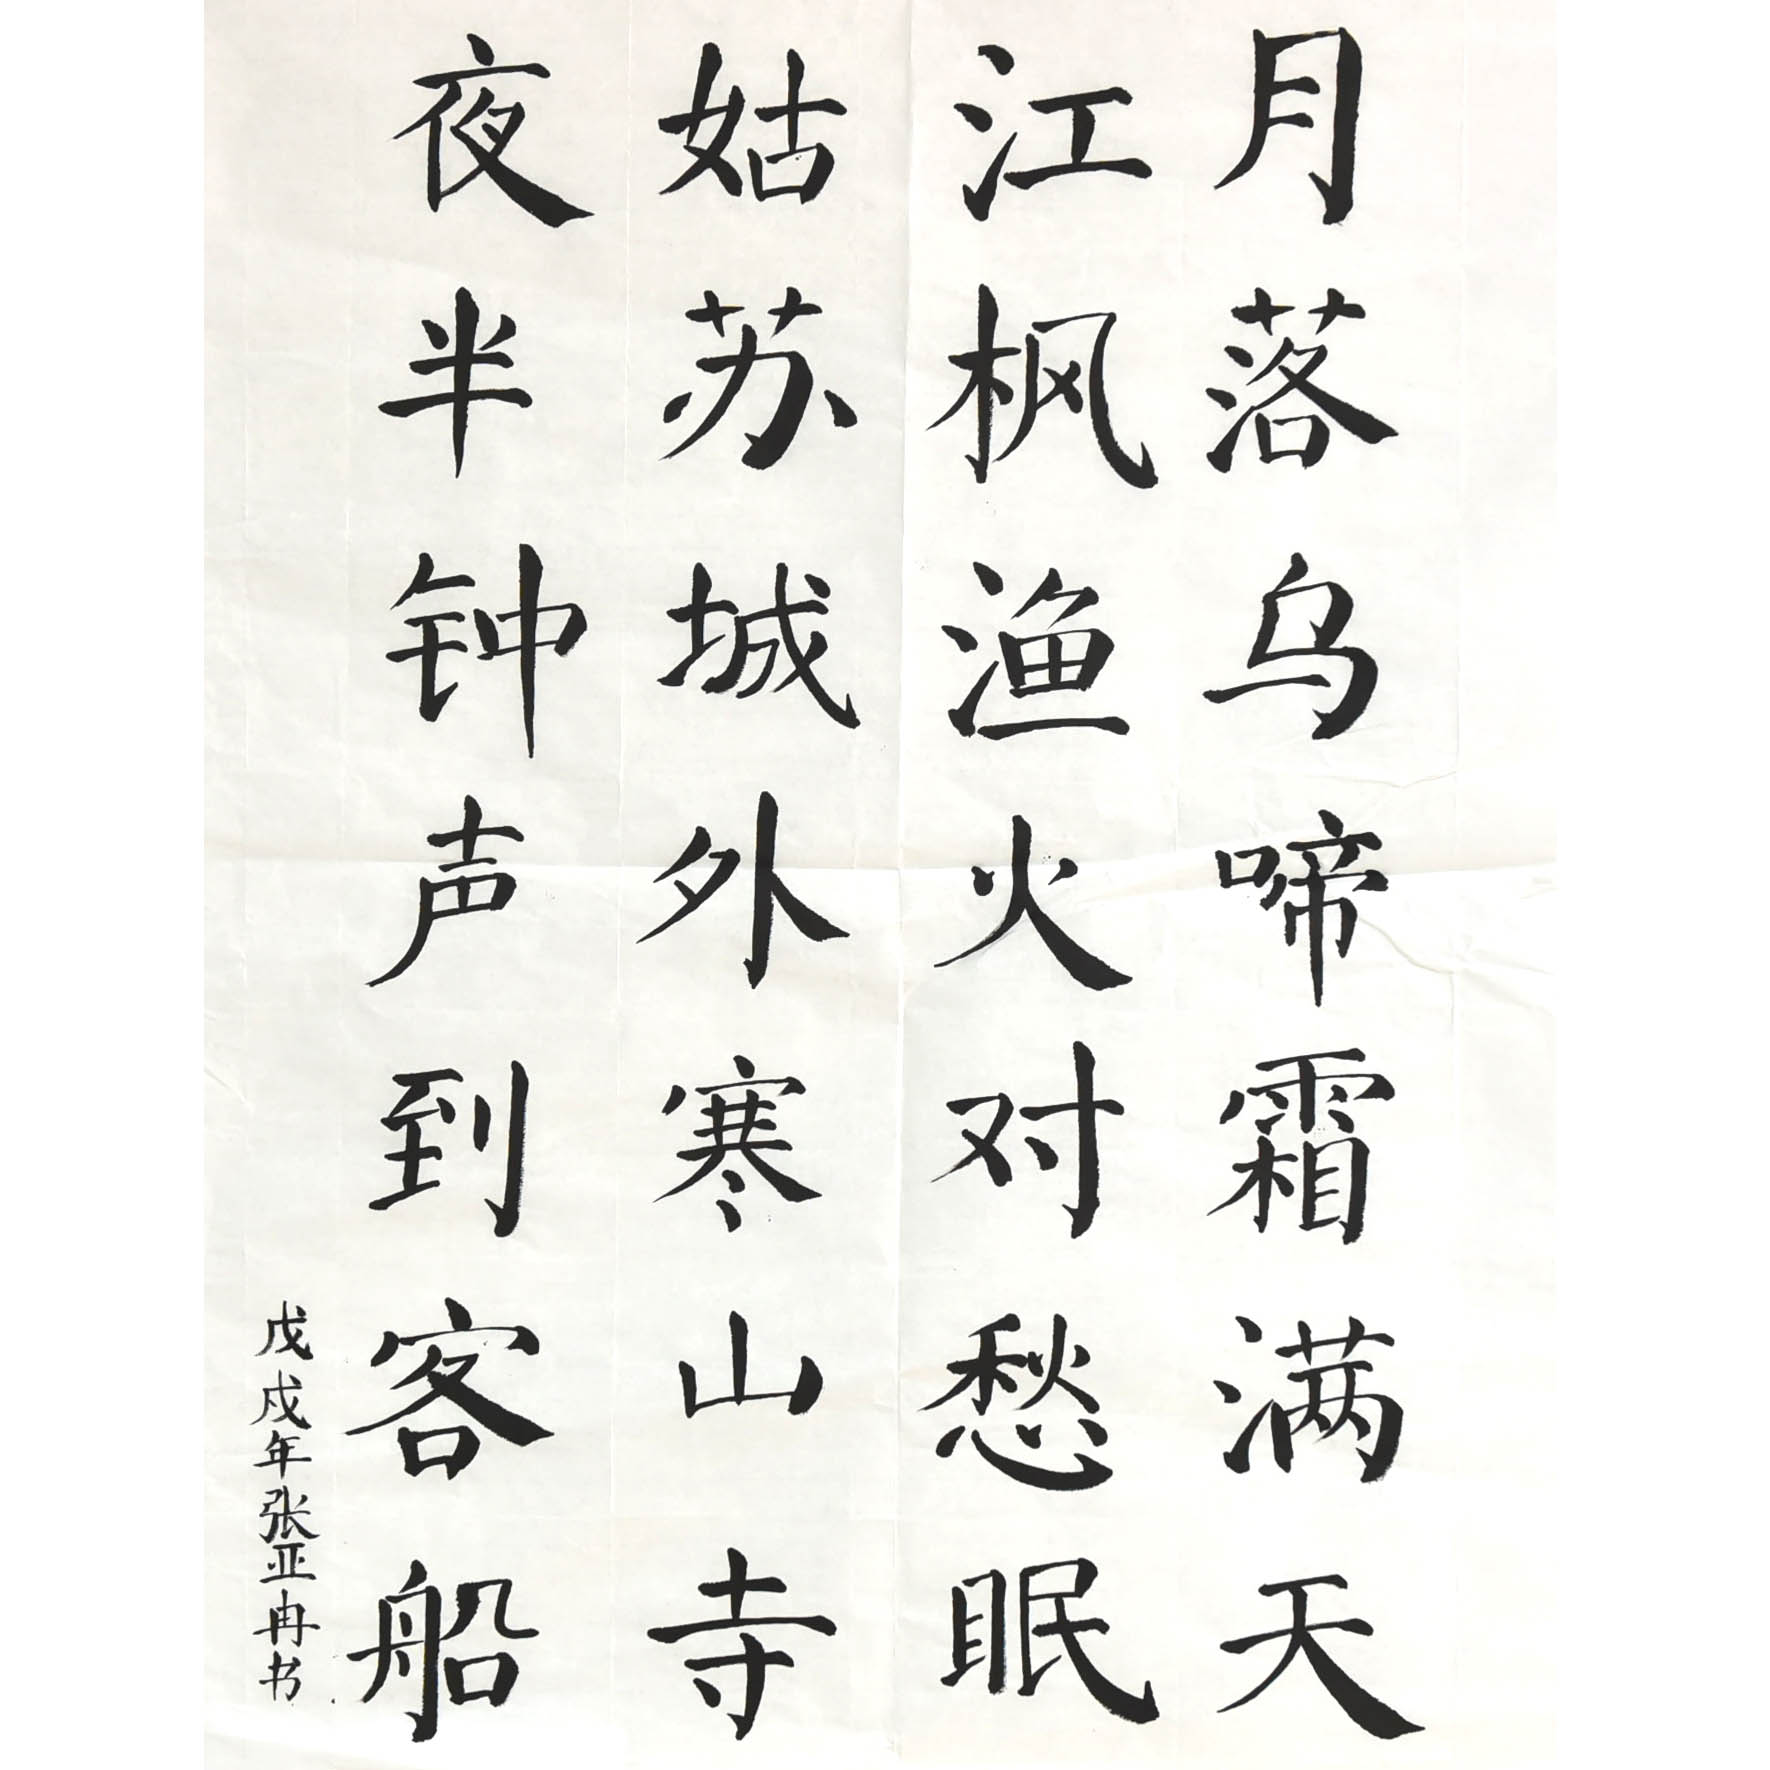 月落乌啼霜满天
江枫渔火对愁眠
姑苏城外寒山寺
夜半钟声到客船
戊戌年张亚冉书